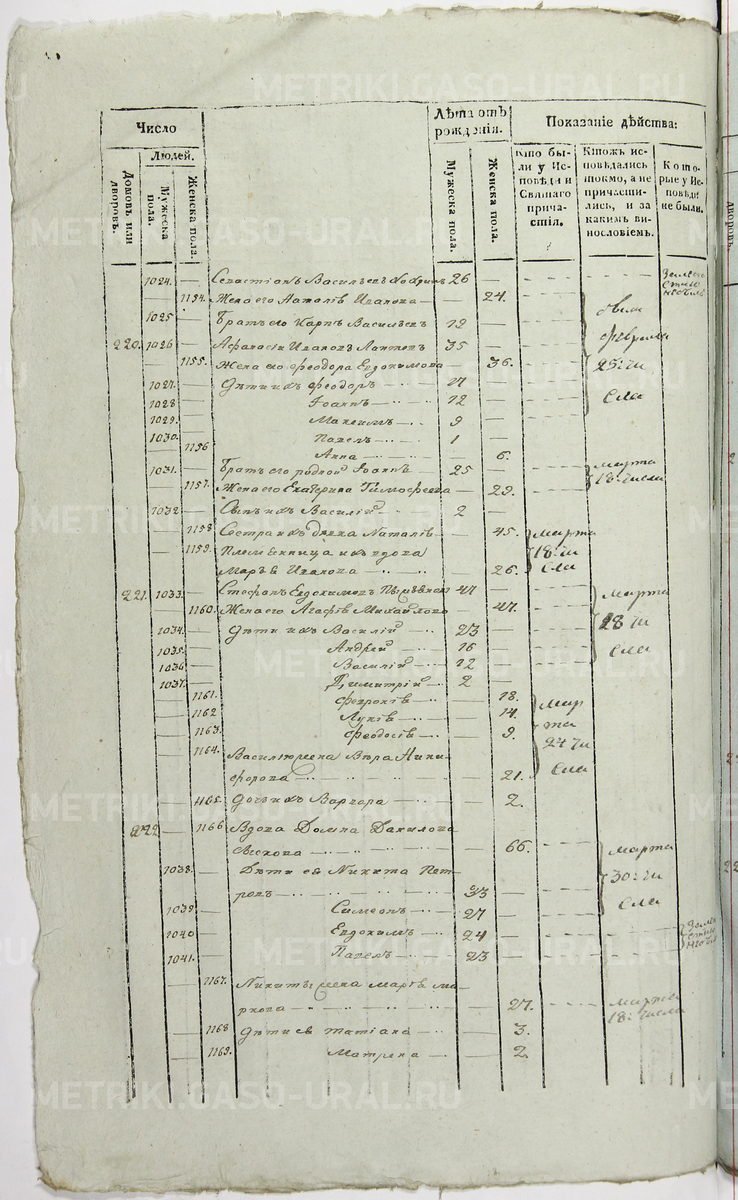 METRIKI.GASO-URAL.RU
Число
Людей.
Домовъ или дворовъ.
Мужеска пола.
Женска пола.
Лѣта отъ рожденія.
Мужеска пола.
Женска пола.
Показаніе дѣйства:
Кто были у Исповѣди и Святаго причастія.
Ктожъ исповѣдались токмо, а не причастились, и за какимъ винословіемъ.
Которые у Исповѣди не были.
1024. Севастіанъ Васильевъ 26
1154. Жена его Наталія Иванова 24.
1025 Братъ его Карпъ Васильевъ 12
220. 1026 Афанасій Ивановъ Лаптевъ 35
февраля
1155. Жена его Феодора Евдокимова 36.
25: чи
1027. Дѣти ихъ Феодоръ 17
1028 Іоаннъ 12
сла
1029. Максимъ 9
1030. Павелъ 1
1156 Анна 6.
1031. Братъ его родной Іоаннъ 25
марта
1157. Жена его Екатерина Тимофеева 29.
18: числа
1032 Сынъ ихъ Василій 2
1158 Сестра ихъ Наталія 45.
марта
1159. Племянница ихъ вдова
18: чи
Марѳа Иванова 26.
сла
221. 1033. Стефанъ Евдокимовъ 47
марта
1160. Жена его Агафія Михайлова 47.
18 чи
1034. Дѣти ихъ Василій 23
1035. Андрей 16
сла
1036. Василій 12
1037. Димитрій 2
1161. Февронія 18.
мар
1162 Лукія 14.
та
1163. Феодосія 9.
27 чи
1164. Василія жена Вѣра Ники-
сла
форова 21.
1165. Дочь ихъ Варвара 2.
222 1166 Вдова Домна Данилова
66.
марта
1038. Дѣти ея Никита Пет-
30: чи
ровъ 33
1039 Симеонъ 27
сла
1040 Евдокимъ 24
1041. Павелъ 23
1167. Никиты жена Марія Ма-
ркова 27.
марта
18: числа
1168 Дѣти ея Татіана 3.
1169. Матрена 2.